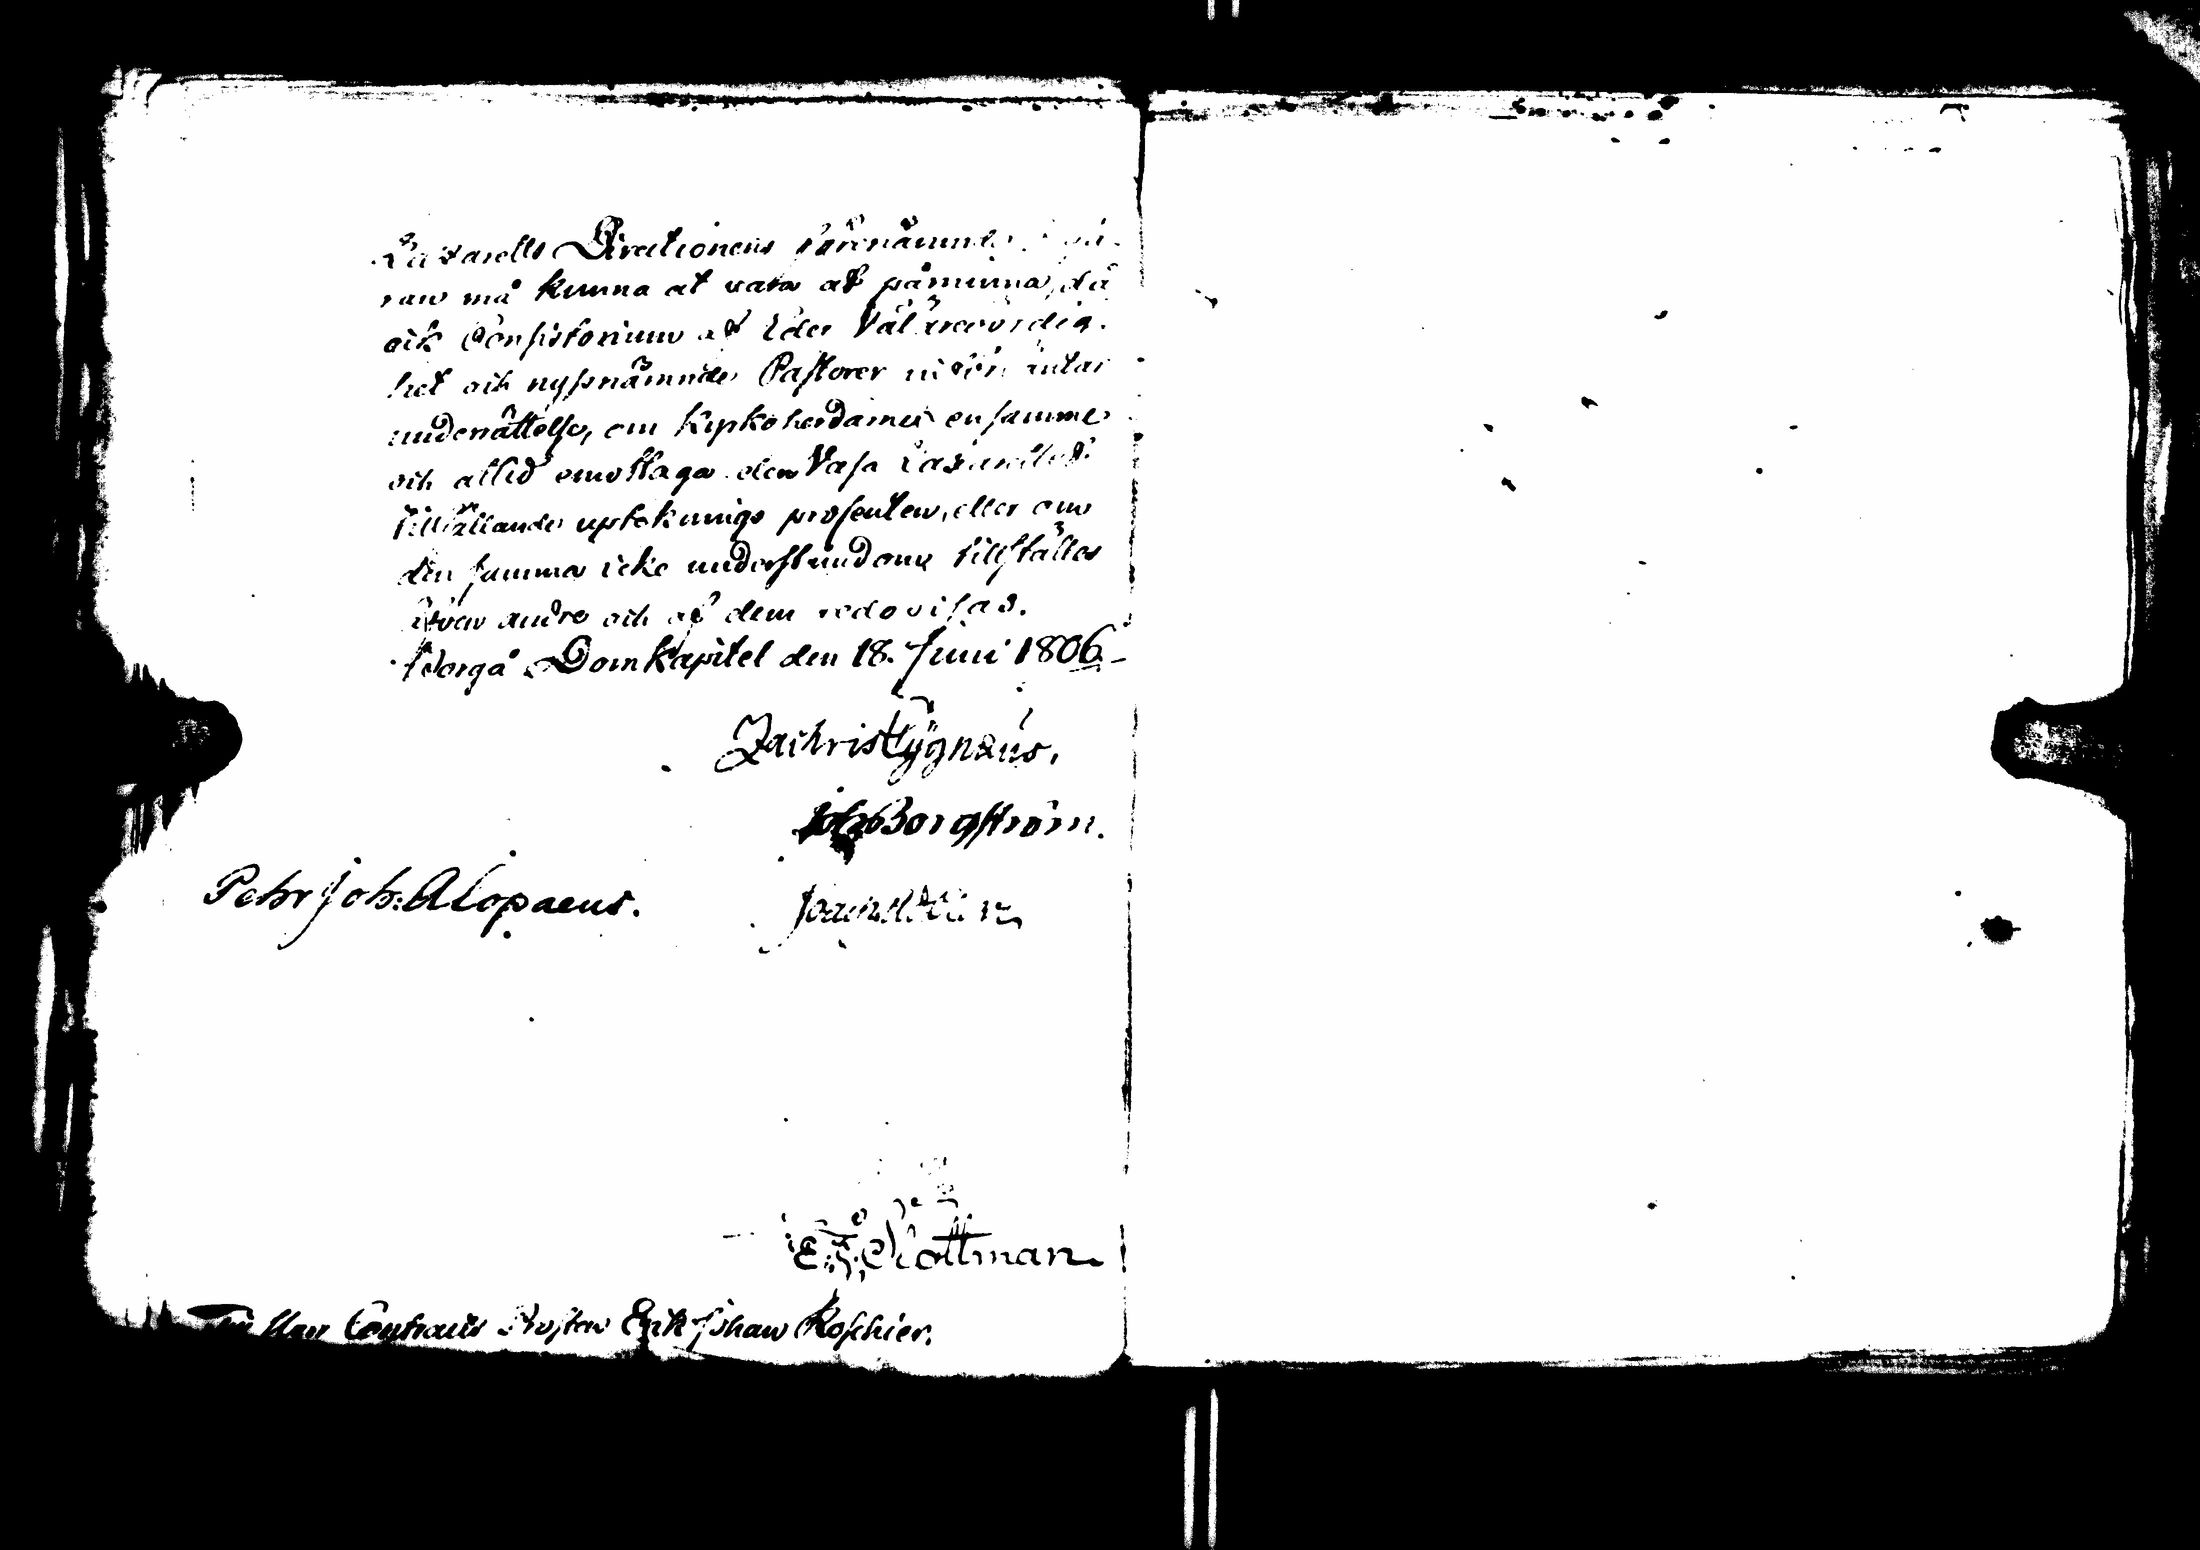 Lazaretts Directionens förenämnde
ran må kunna at vara at påminna, då
ock Consistorium af Eder Välärevördig-
het och nyssnämnde Pastorer
underrättelse, om Kyrkoherdarne ensamme
och altid emottaga den Vasa Lazarettet
tillfallande uptecknings procenten, eller om
den samma icke understundom tillställes
äfven andre och af dem redovisas.
Borgå Domkapitel den 18. Junii 1806.
Zachris Cygnæus.
Joh: Borgström.
Petr Joh: Alopaeus.
E. Z. Krottman
Till Herr Contracts Prosten Erik Johan Roschier.